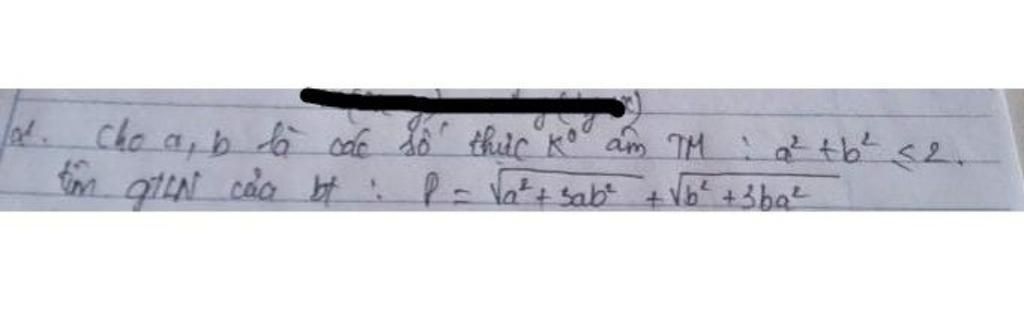 d. Cho a, b là các số thức K⁰ âm TM : a² + b² ≤ 2.
tìm GTLN của bt : P = √(a² + 3ab²) + √(b² + 3ba²)